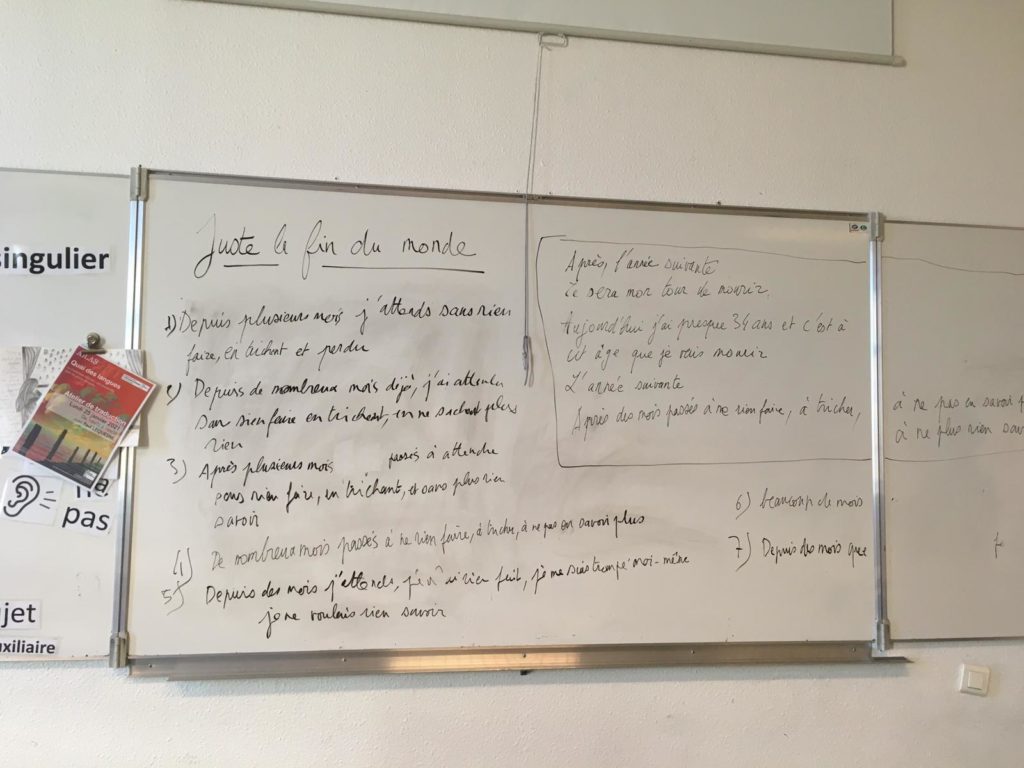 singulier
Juste la fin du monde
1) Depuis plusieurs mois j'attends sans rien
faire, en trichant et perdu
2) Depuis de nombreux mois déjà, j'ai attendu
sans rien faire en trichant, en ne sachant plus
rien
3) Après plusieurs mois passés à attendre
sans rien faire, en trichant, et sans plus rien
savoir
4) De nombreux mois passés à ne rien faire, à tricher, à ne pas en savoir plus
5) Depuis des mois j'attends, je n'ai rien fait, je me suis trompé moi-même
je ne voulais rien savoir
Après, l'année suivante
Ce sera mon tour de mourir.
Aujourd'hui j'ai presque 34 ans et c'est à
cet âge que je vais mourir
L'année suivante
Après des mois passés à ne rien faire, à tricher,
à ne pas en savoir p
à ne plus rien sav
6) beaucoup de mois
7) Depuis des mois que
ATLAS
Quai des langues
Atelier de traduction
ne
pas
ujet
uxiliaire